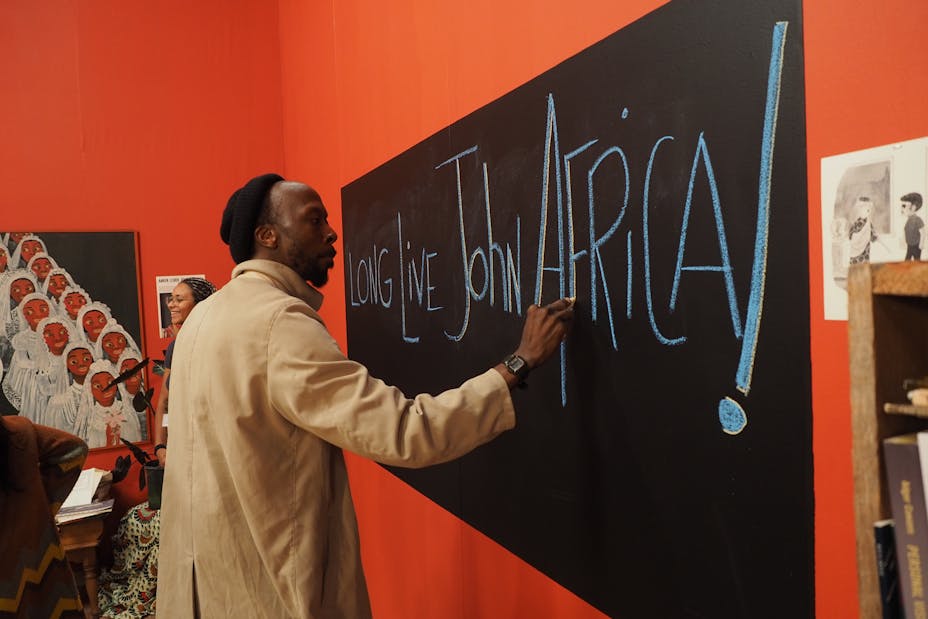 LONG LIVE JohN AFRiCA!
PERSONAL